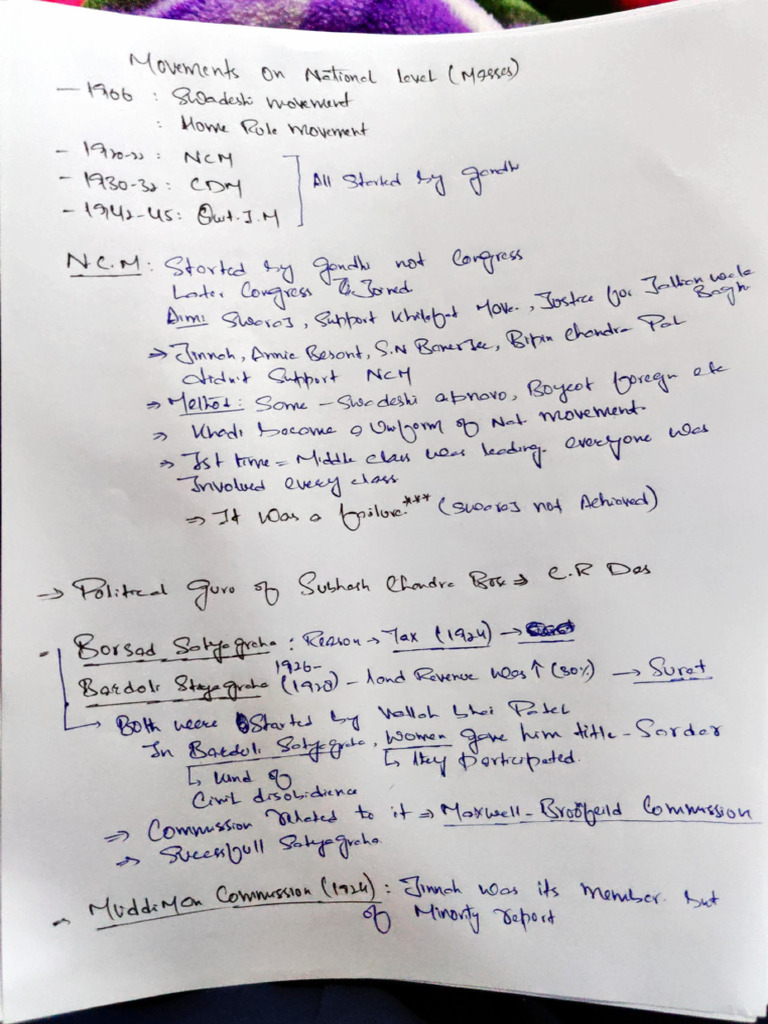 Movements on National level (Masses)
- 1906 : Swadeshi movement
: Home Rule movement
- 1920-22 : NCM
- 1930-32 : CDM
- 1942-45 : Quit.I.M
All Started by gandhi
N.C.M : Started by gandhi not Congress
Later Congress Joined
Aim: Swaraj, Support Khilafat Move., Justice for Jallianwala Bagh
→ Jinnah, Annie Besant, S.N Banerjee, Bipin Chandra Pal
didn't Support NCM
⇒ Method: Some - Swadeshi apnavo, Boycot foreign etc
⇒ Khadi became a Uniform of Nat movement.
⇒ Ist time = Middle class was leading. everyone was
Involved every class
⇒ It was a failure.*** (Swaraj not Achieved)
→ Political Guro of Subhash Chandra Bose ⇒ C.R Das
Borsad Satyagraha : Reason → Tax (1924) →
Bardoli Styagraha (1926-1928) - land Revenue was ↑ (30%) → Surat
→ Both were Started by Vallabh bhai Patel
In Bardoli Satyagraha, women gave him title - Sardar
↳ they participated.
↳ kind of
Civil disobidience
⇒ Commission related to it ⇒ Maxwell - Broofeild Commission
⇒ Sucessfull Satyagraha.
→ MuddiMan Commission (1924) : Jinnah was its member. but
of Minority report